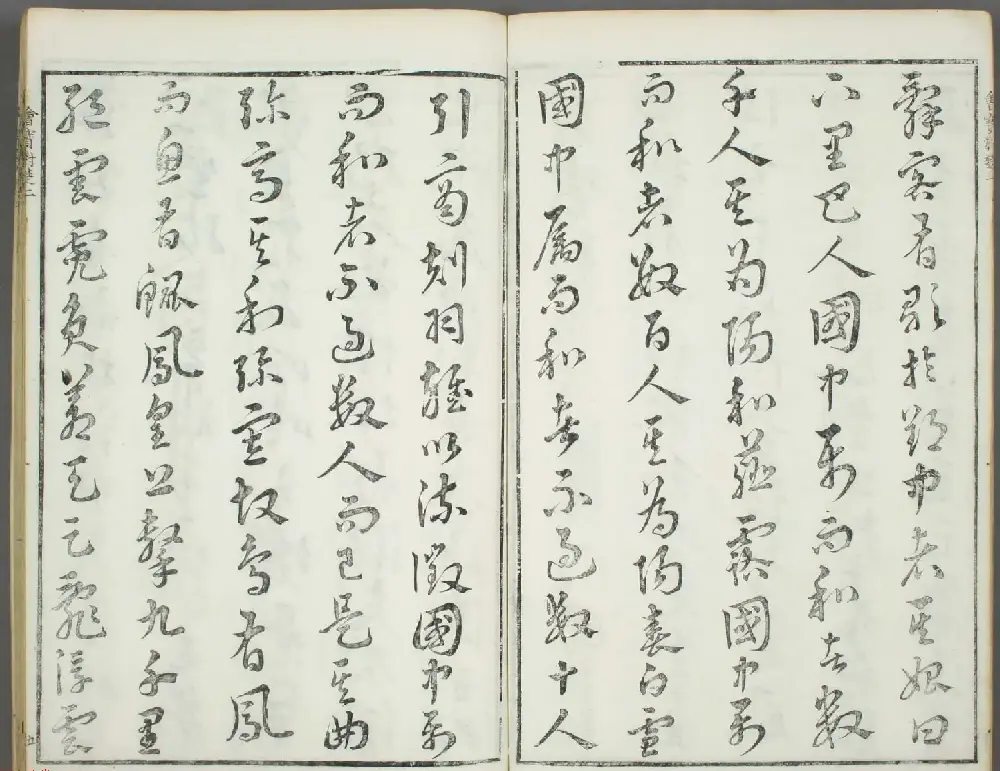 辭客有歌於郢中者其始曰
下里巴人國中屬而和者數
千人其為陽和薤露國中屬
而和者數百人其為陽春白雪
國中屬而和者不過數十人
引商刻羽雜以流徵國中屬
而和者不過數人而已是其曲
彌高其和彌寡故鳥有鳳
而魚有鯤鳳皇上擊九千里
絕雲霓負蒼天足亂浮雲